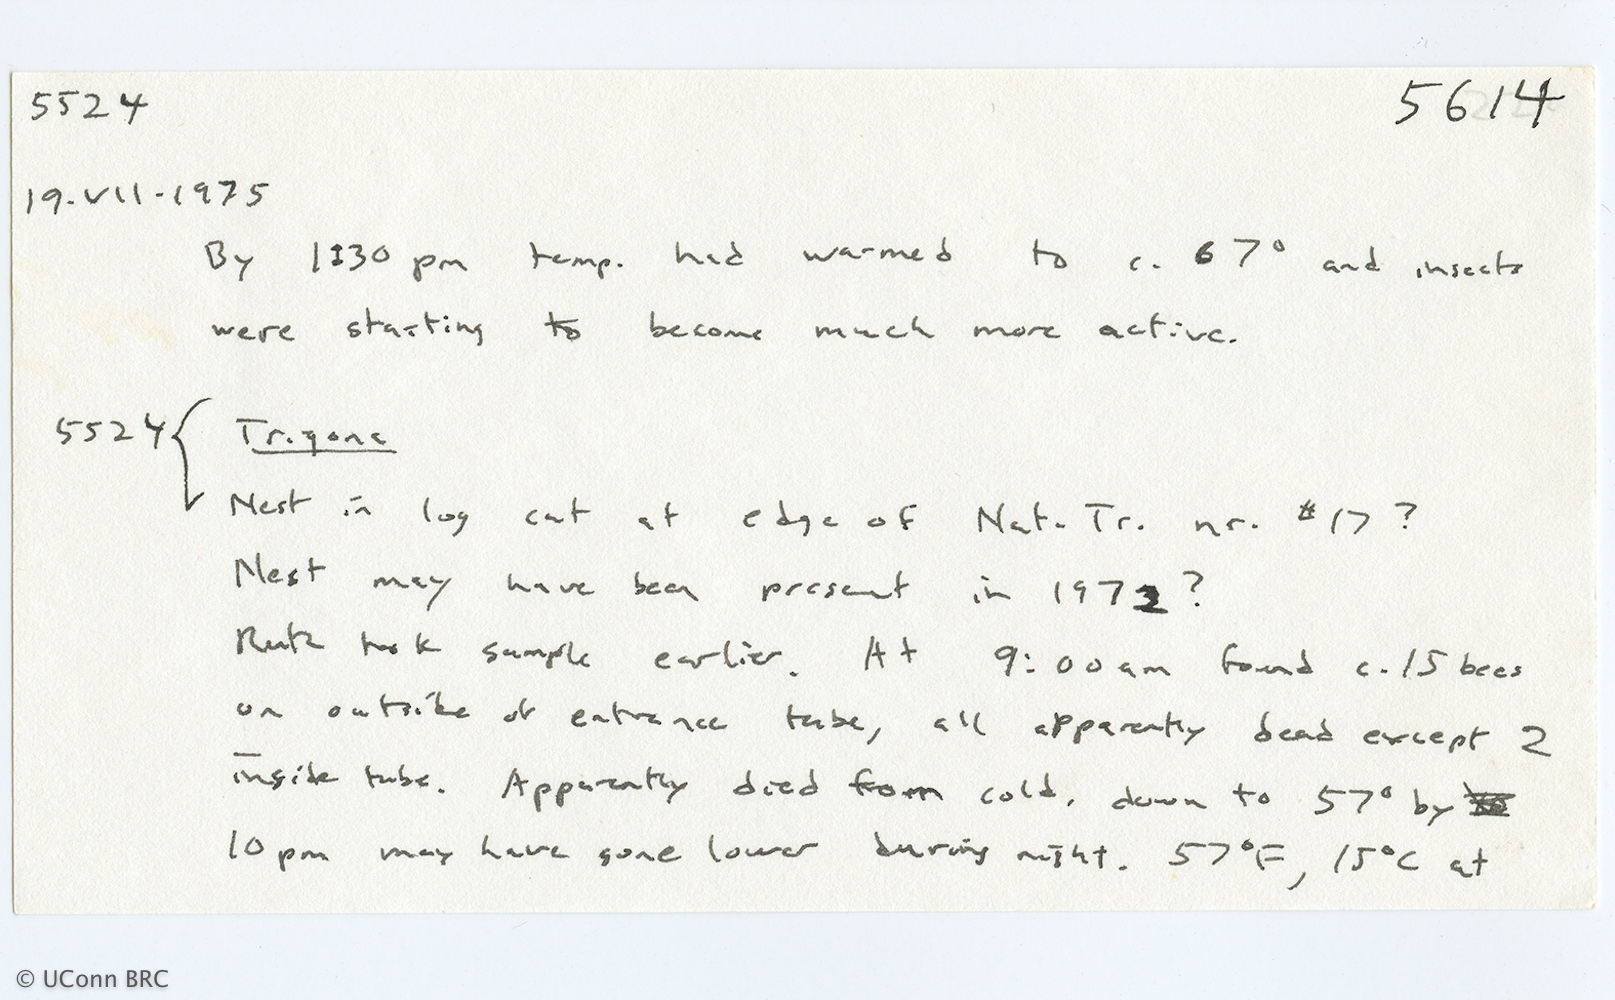 5524 5614
19-VII-1975
By 1:30 pm temp. had warmed to c. 67° and insects
were starting to become much more active.
5524 { Trigona
Nest in log cut at edge of Nat. Tr. nr. #17?
Nest may have been present in 1972?
Ruth took sample earlier. At 9:00 am found c. 15 bees
on outside of entrance tube, all apparently dead except 2
inside tube. Apparently died from cold, down to 57° by
10 pm may have gone lower during night. 57°F, 15°C at
© UConn BRC